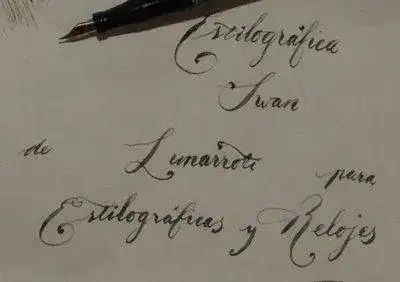 Estilográfica
Swan
de Lunarroti para
Estilográficas y Relojes